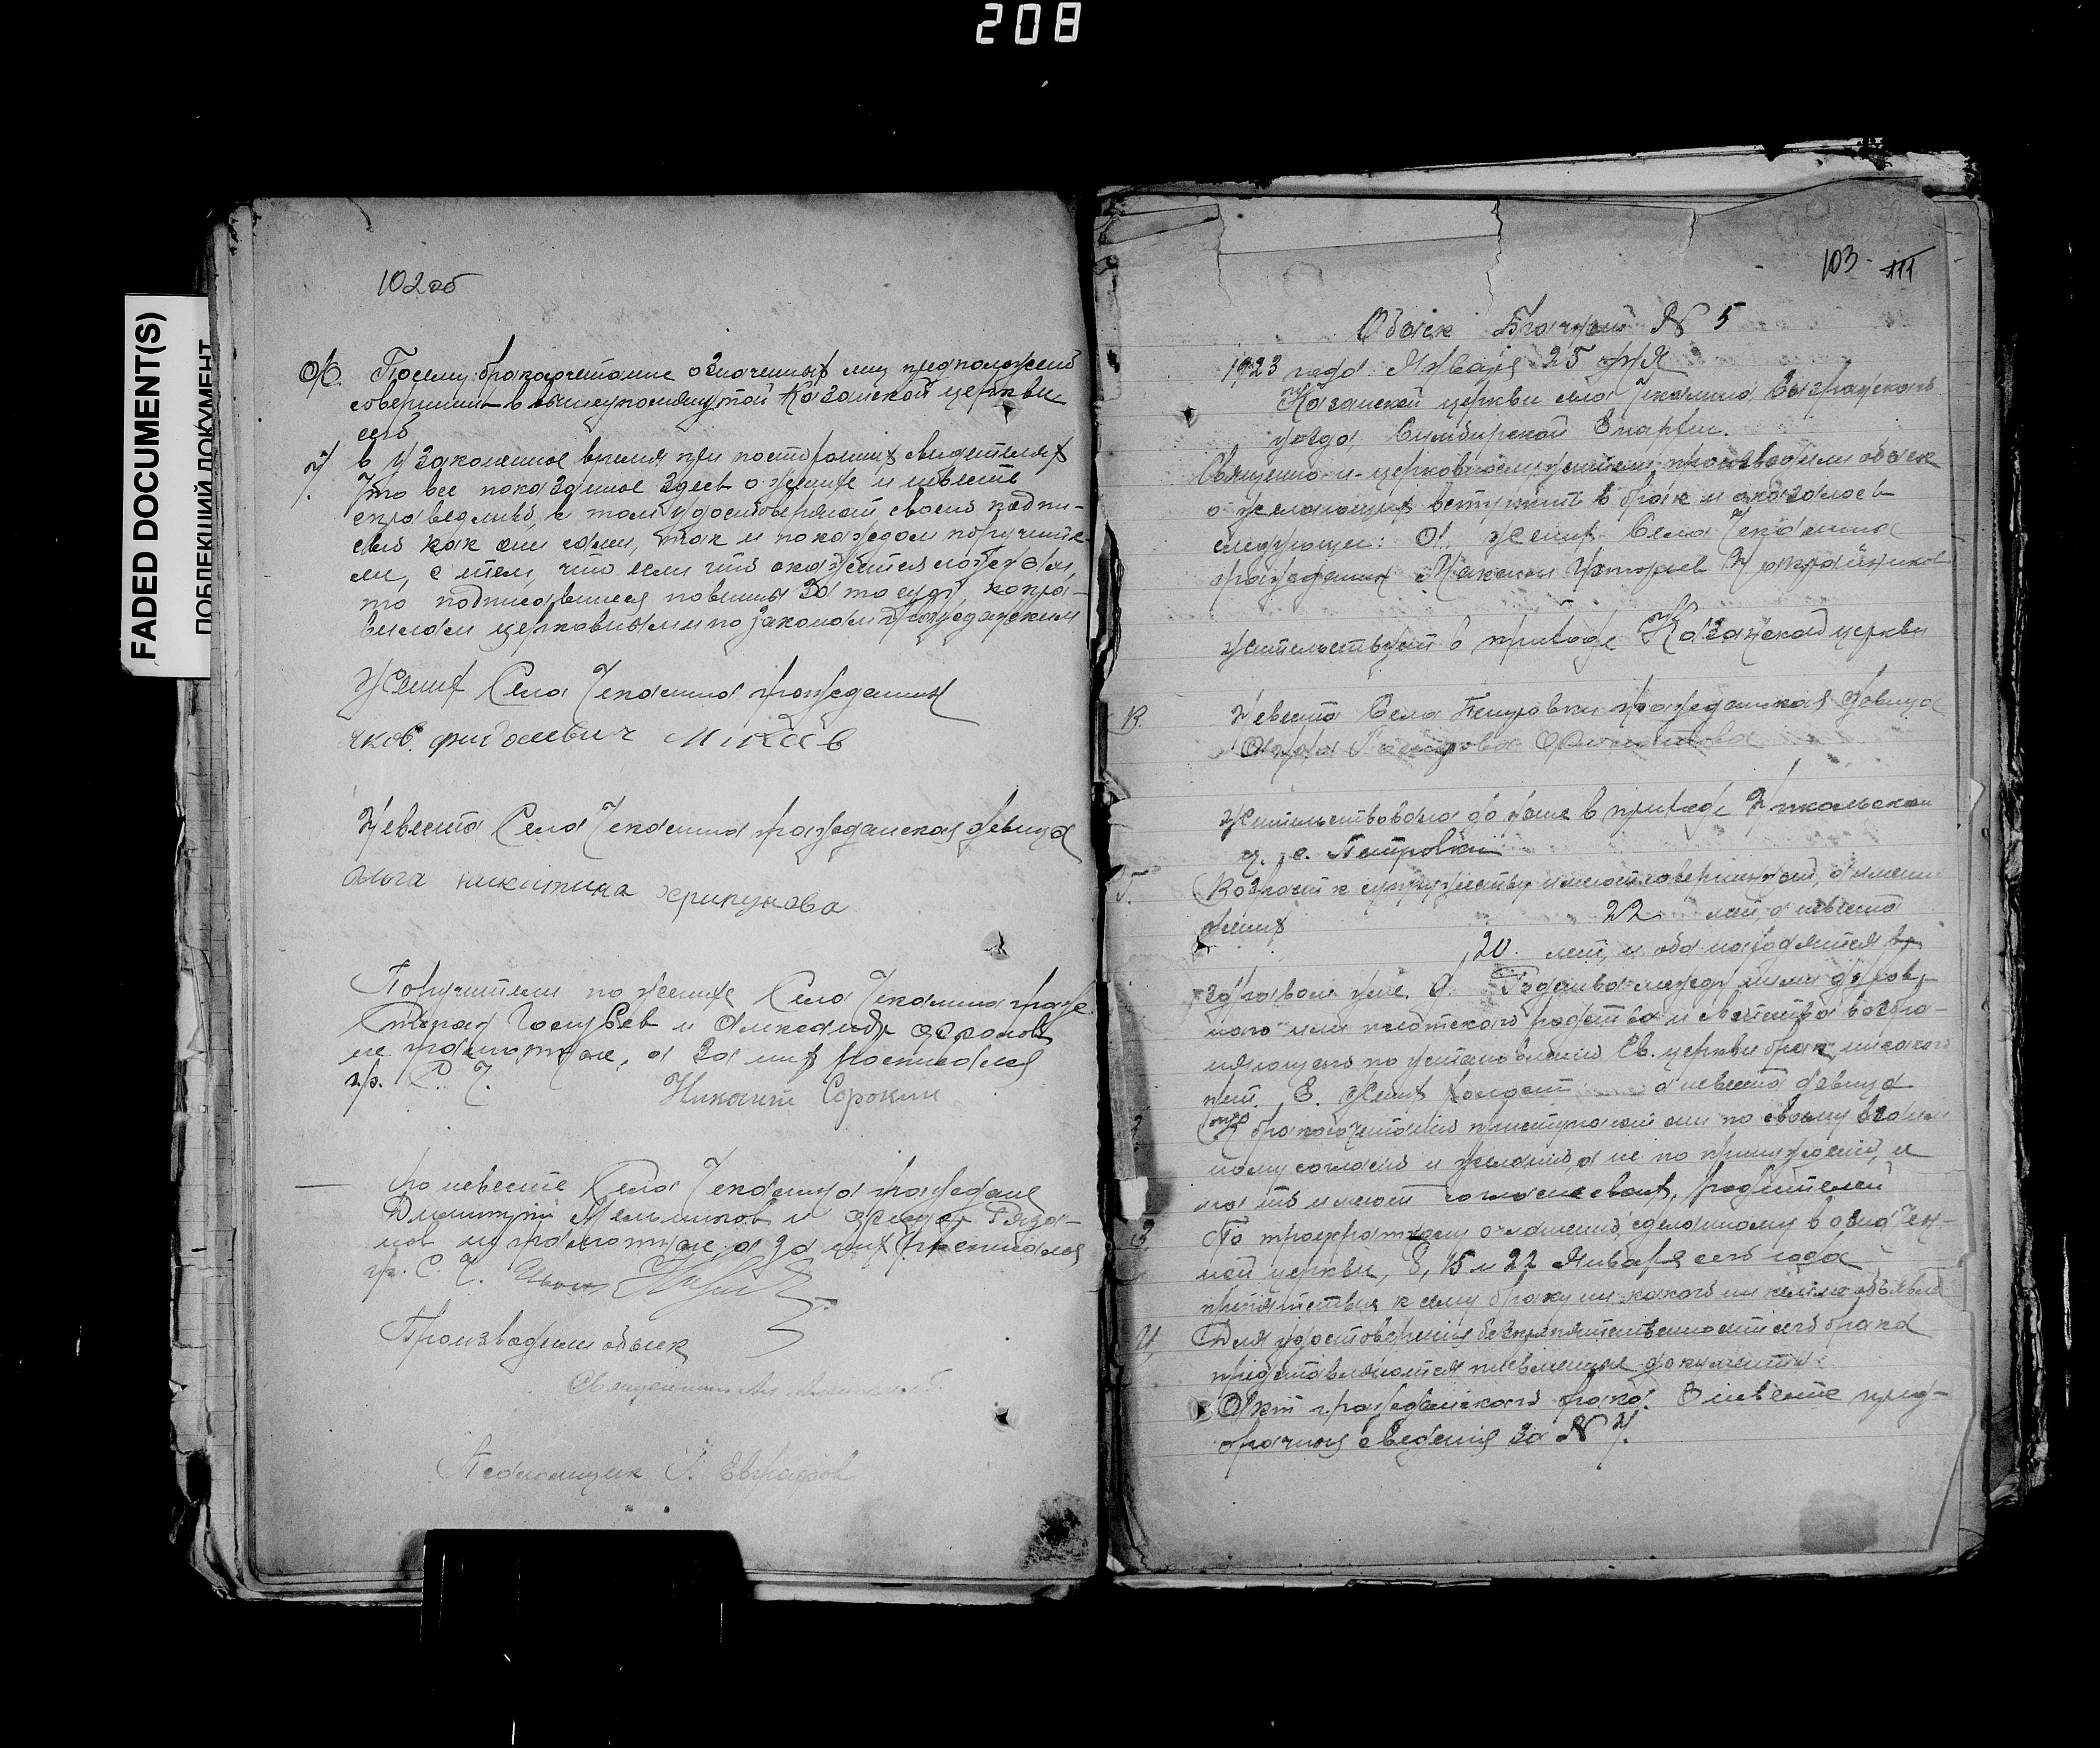 208
FADED DOCUMENT(S)
ПОБЛЕКШИЙ ДОКУМЕНТ
102 об
Ж. Посему бракосочетание означенных лиц предположено
совершить в вышеупомянутой Казанской церкви
сего
в узаконенное время при посторонних свидетелях
Что все показанное здесь о женихе и невесте
справедливо, в том удостоверяют своею подпи-
сью как они сами, так и по каждом поручите-
ли, с тем, что если что окажется ложным,
то подписавшиеся повинны за то суду, по пра-
вилам церковным и по законам гражданским
Жених Села Чекалина гражданин
Яков Микеев
Невеста Села Чекалина гражданская девица
Ольга Никитина Хрипунова
Поручители по женихе Села Чекалина граж.
Степан Голубев и Александр Фролов
не грамотные, а за них росписался
гр. С. Ч. Сорокин
По невесте Села Чекалина граждане
Димитрий Мельников и
не грамотные а за них росписался
гр. С. Ч.
Производили обыск
Священник
Псаломщик Евграфов
103 111
Обыск Брачный № 5
1923 года Января 25 дня
Казанской церкви села Чекалина, Сызранского
уезда Симбирской Епархии.
Священно-и-церковнослужители производили обыск
о желающих вступить в брак и оказалось
следующее: А, жених Села Чекалина
гражданин
жительствует в приходе Казанской церкви
В. Невеста Села Петровки гражданская девица
жительствовала до ныне в приходе Никольской
ц. с. Петровки
Возраст к супружеству имеют совершенный, а именно
жених 22 лет, а невеста
20. лет, и оба находятся в
здравом уме. Д. Родства между ними духов-
ного или плотского родства и свойства возбра-
няющего по установлению Св. церкви брак, никакого
нет. Е. Жених холост а невеста девица
К бракосочетанию приступают они по своему взаим-
ному согласию и желанию, а не по принуждению, и
на то имеют согласие своих родителей
По троекратному оглашению, сделанному в означен-
ной церкви, 8, 15 и 22 Января сего года
препятствия к сему браку никакого ни кем не объявлено
И, Для удостоверения безпрепятственности сего брака
представляются письменные документы:
Акт гражданского брака. О невесте пред-
брачныя сведения за №